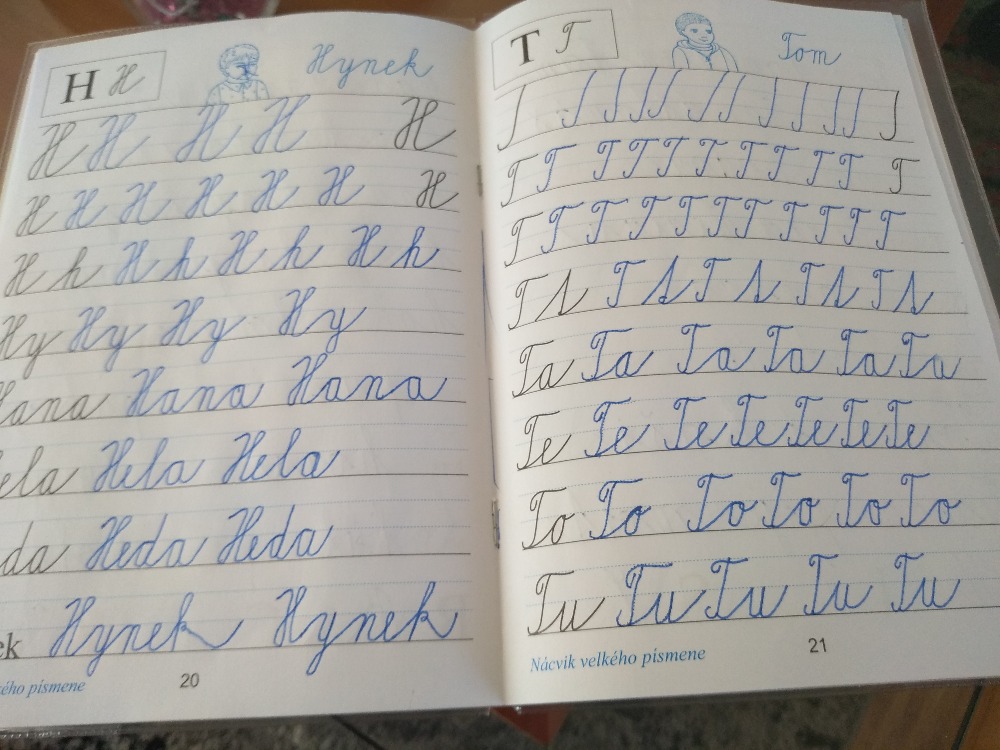 H H Hynek
H H H H H
H H H H H H H
H h H h H h H h
Hy Hy Hy Hy
ana Hana Hana
ela Hela Hela
da Heda Heda
ek Hynek Hynek
kého písmene 20
T T Tom
T T T T T T T T T T T
T T T T T T T T T T T
T s T s T s T s T s
Ta Ta Ta Ta Ta Ta
Te Te Te Te Te Te Te
To To To To To To
Tu Tu Tu Tu Tu
Nácvik velkého písmene 21